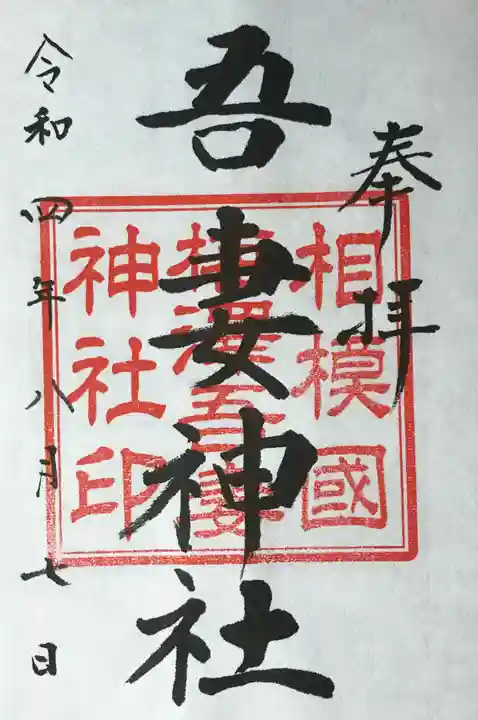 奉拝
吾妻神社
令和四年八月七日
相模國
梅澤吾妻
神社印